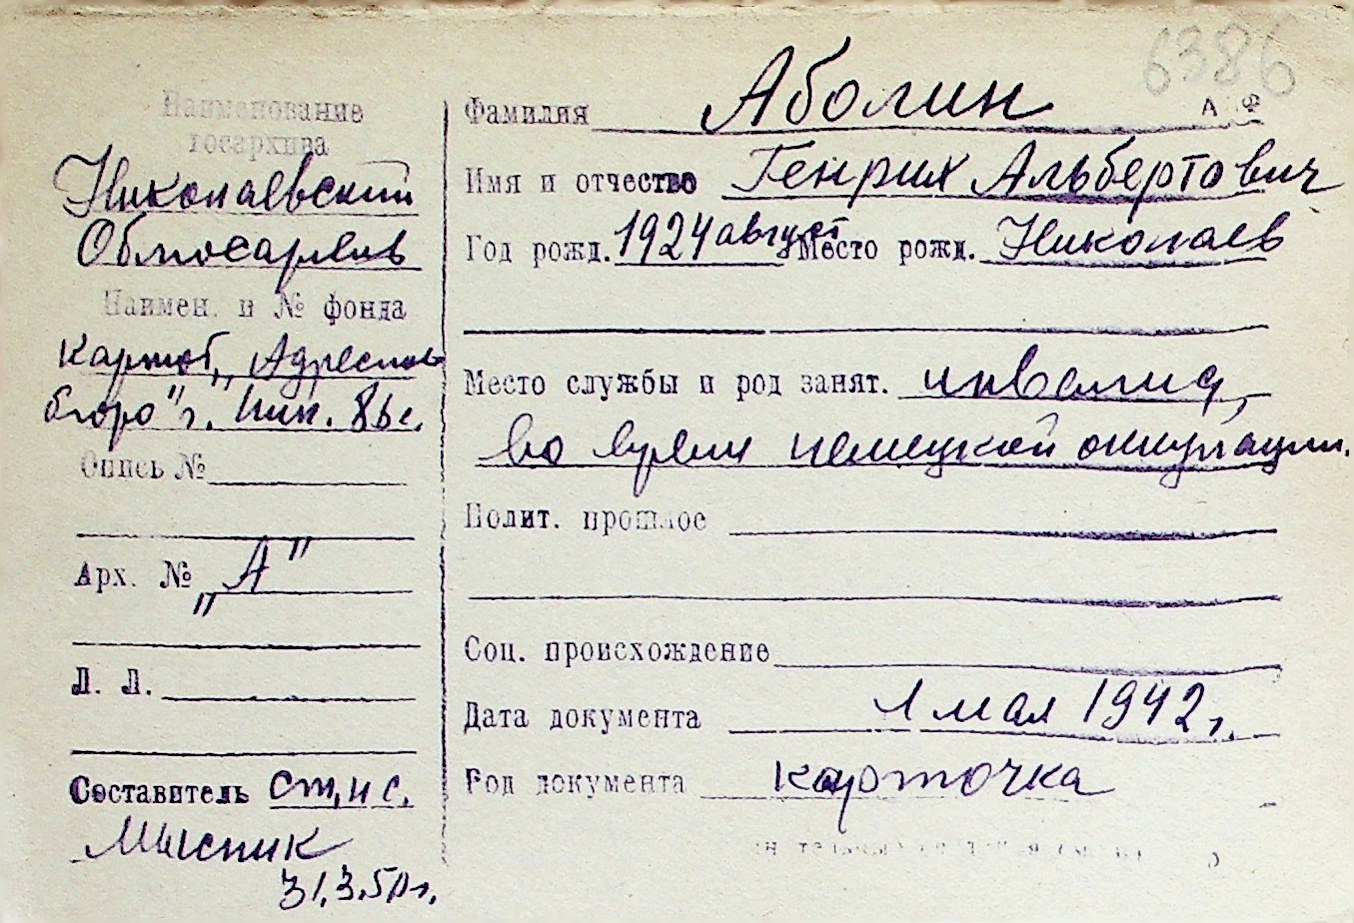 6386
Наименование
госархива
Николаевский
Облгосархив
Наимен. и № фонда
картот. „Адресного
бюро" г. Ник.
Опись №
Арх. № „А"
Л. Л.
Составитель ст. н с.
Мысник
31.3.50 г.
Фамилия Аболин
А
Имя и отчество Генрих Альбертович
Год рожд. 1924 август Место рожд. Николаев
Место службы и род занят. инвалид,
во время немецкой оккупации.
Полит. прошлое
Соц. происхождение
Дата документа 1 мая 1942 г.
Род документа карточка